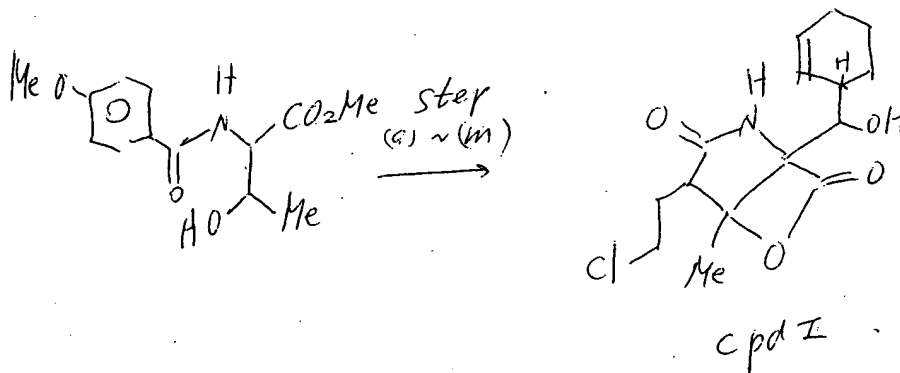 MeO
H
N
CO₂Me
O
HO
Me
step
(a) ~ (m)
H
H
O
N
OH
O
O
Cl
Me
cpd I